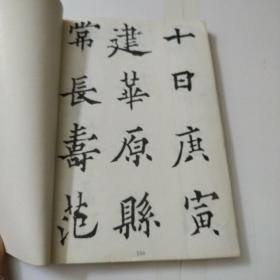 十日庚寅
建華原縣
常長壽范